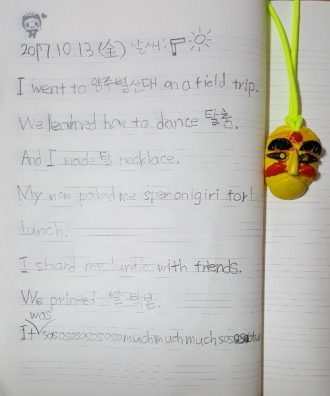 2017.10.13 (金) 날씨:
I went to 양주별산대 on a field trip.
We learned how to dance 탈춤.
And I made 탈 necklace.
My mom packed me spam onigiri for
lunch.
I shard my luntic with friends.
We printed 탈
was
It sososososososomuchmuchmuchsoso